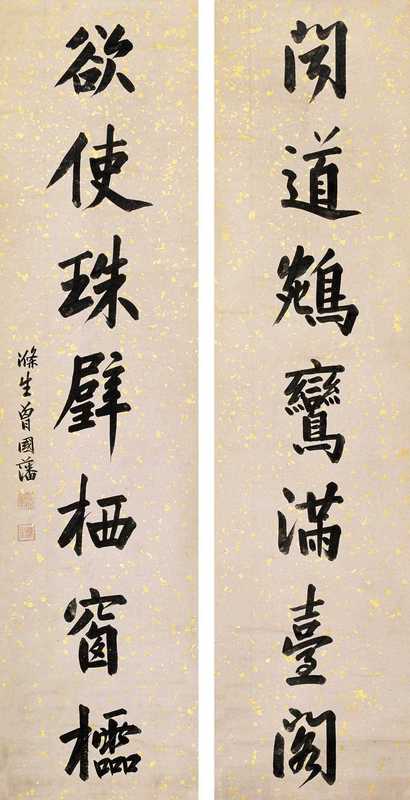 聞道鵷鸞滿臺閣
欲使珠璧栖窗櫺
滌生曾國藩